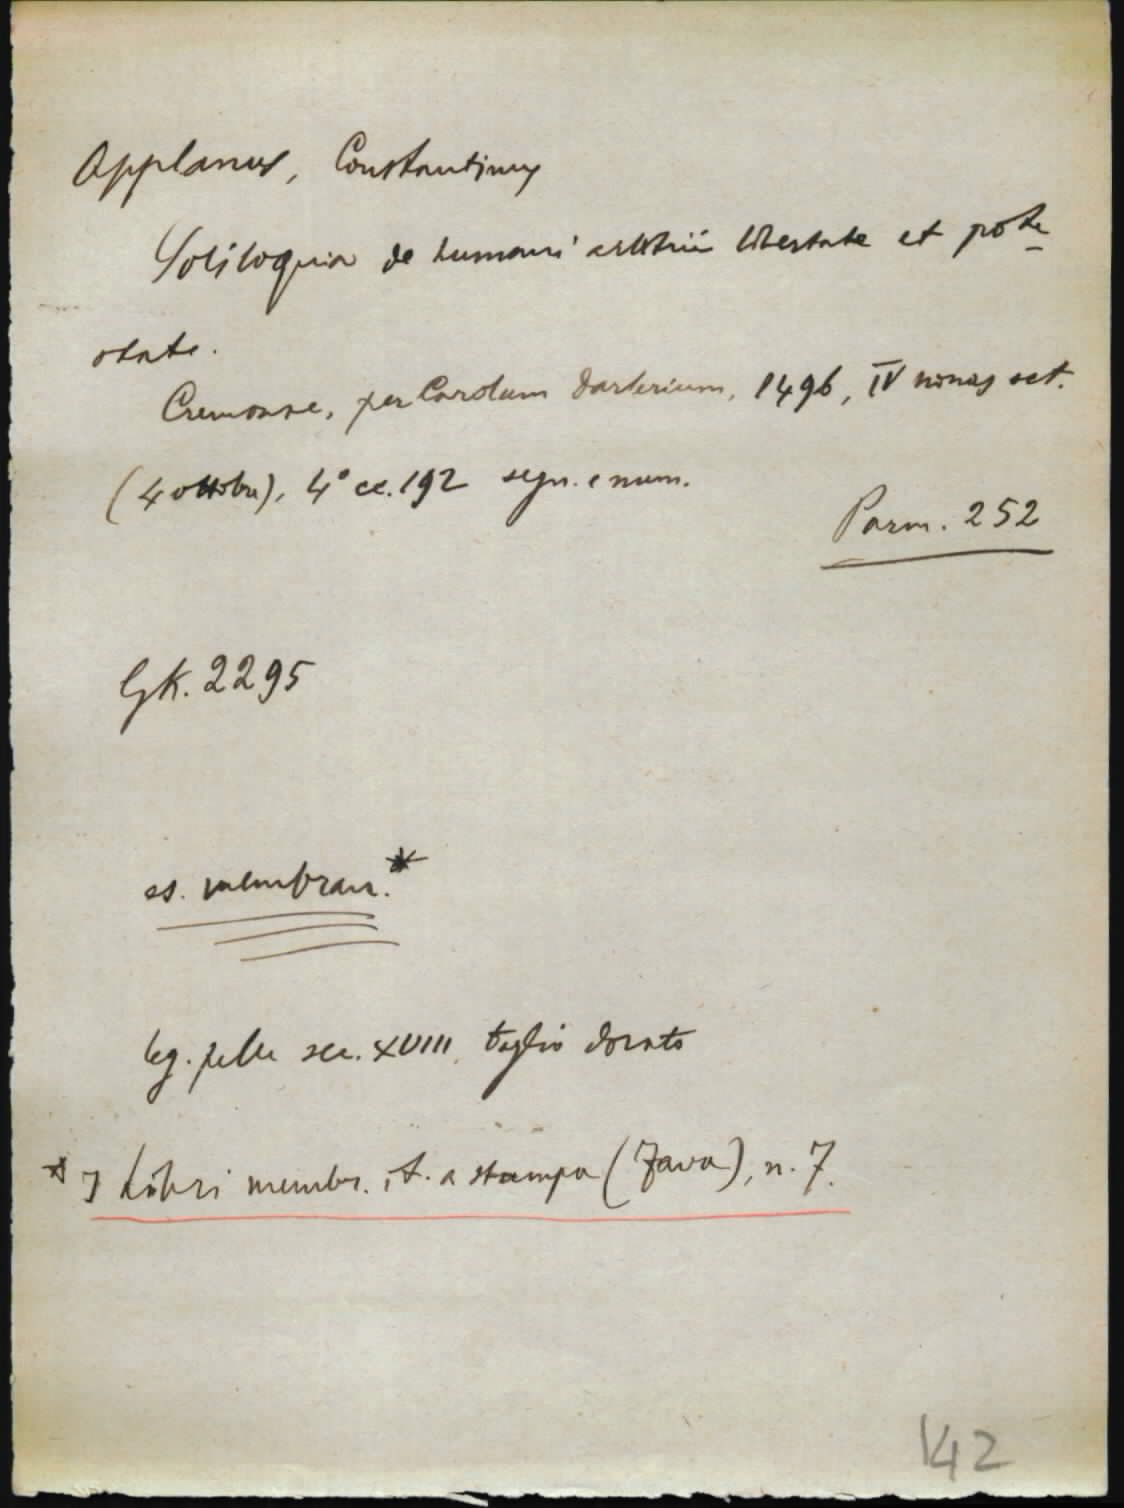 Applanus, Constantinus
Soliloquia de humani arbitrii libertate et pote-
state.
Cremonae, per Carolum Darlerium, 1496, IV nonas oct.
(4 ottobre), 4° cc. 192 segn. e num.
Parm. 252
GK. 2295
es. membran.*
leg. pelle sec. XVIII, taglio dorato
* I Libri membr. it. a stampa (Zava), n. 7.
142